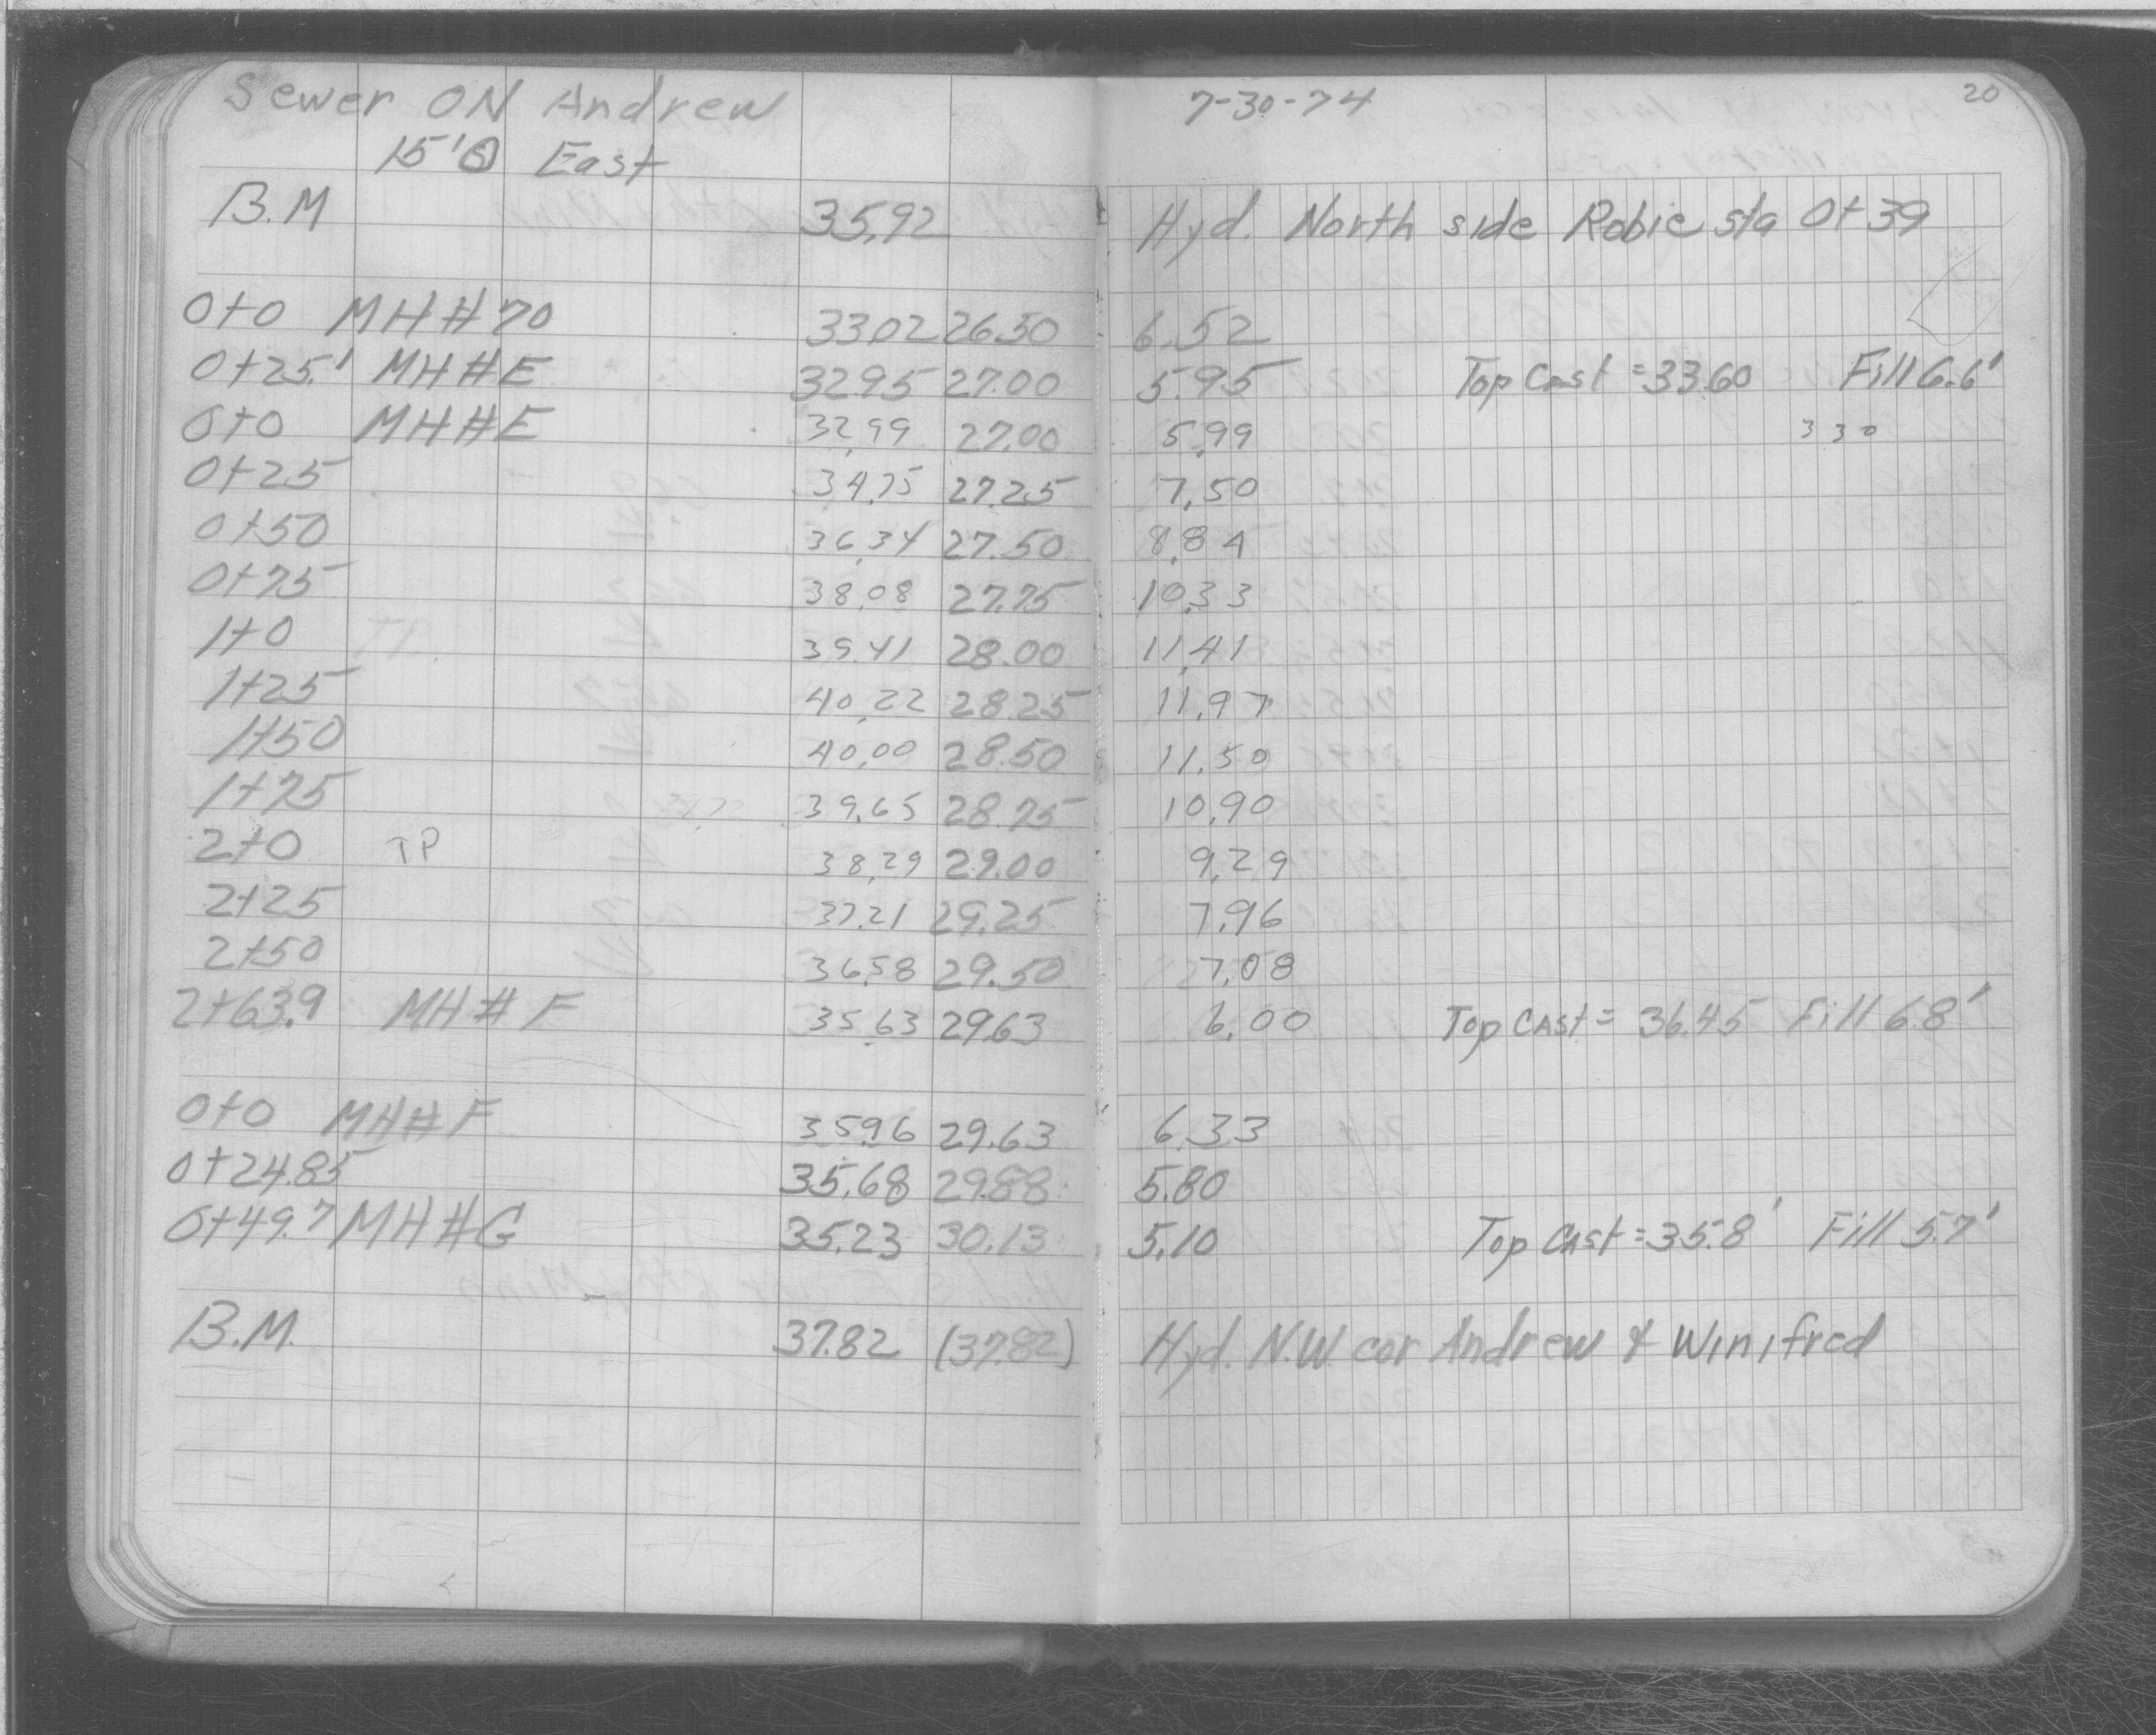 Sewer ON Andrew 7-30-74 20
15' Ⓢ East
B.M 35.92 Hyd. North side Robie sta 0+39
0+0 MH#70 33.02 26.50 6.52
0+25.' MH#E 32.95 27.00 5.95 Top Cast = 33.60 Fill 6.6'
0+0 MH#E 32.99 27.00 5.99 3 3 0
0+25 34.75 27.25 7.50
0+50 36.34 27.50 8.84
0+75 38.08 27.75 10.33
1+0 39.41 28.00 11.41
1+25 40.22 28.25 11.97
1+50 40.00 28.50 11.50
1+75 39.65 28.75 10.90
2+0 TP 38.29 29.00 9.29
2+25 37.21 29.25 7.96
2+50 36.58 29.50 7.08
2+63.9 MH#F 35.63 29.63 6.00 Top Cast = 36.45 Fill 6.8'
0+0 MH#F 35.96 29.63 6.33
0+24.85 35.68 29.88 5.80
0+49.7 MH#G 35.23 30.13 5.10 Top Cast = 35.8' Fill 5.7'
B.M. 37.82 (37.82) Hyd. N.W. cor Andrew & Winifred